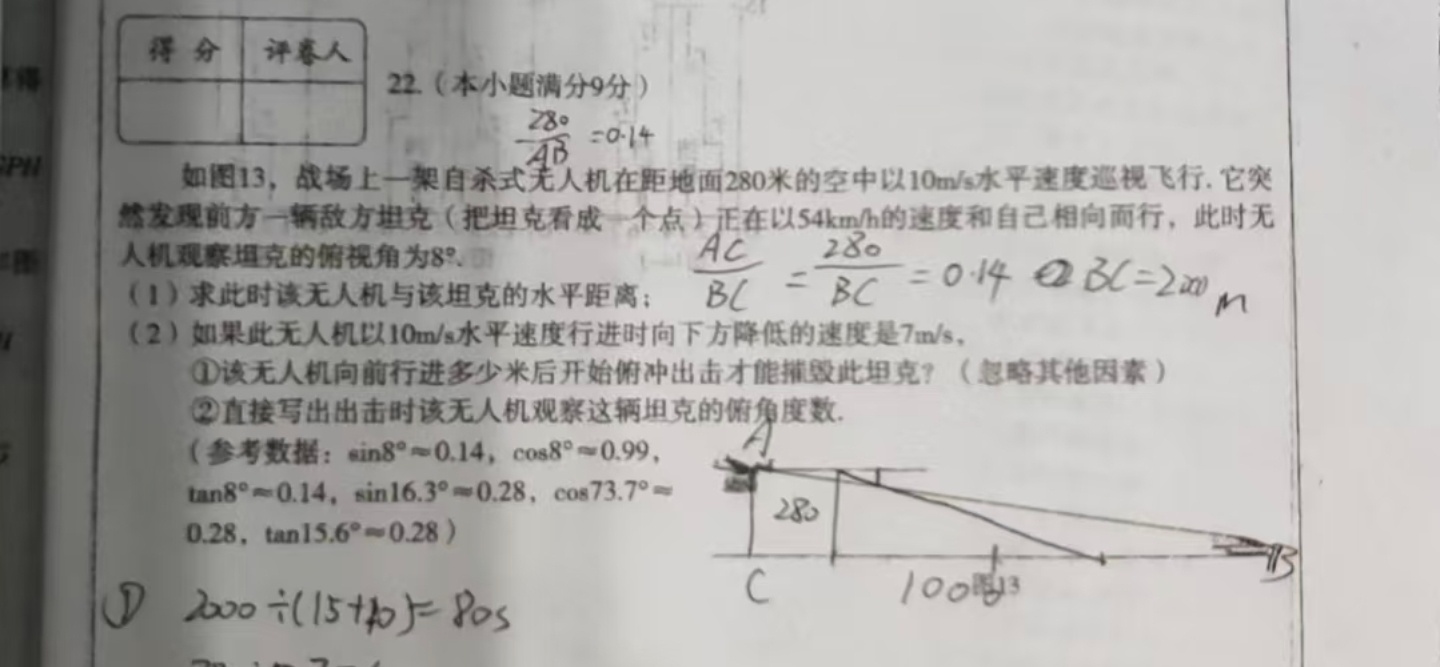 得分 评卷人
22.（本小题满分9分）
280/AB =0.14
如图13，战场上一架自杀式无人机在距地面280米的空中以10m/s水平速度巡视飞行.它突
然发现前方一辆敌方坦克（把坦克看成一个点）正在以54km/h的速度和自己相向而行，此时无
人机观察坦克的俯视角为8°.
AC/BC = 280/BC = 0.14 BC=2000m
（1）求此时该无人机与该坦克的水平距离；
（2）如果此无人机以10m/s水平速度行进时向下方降低的速度是7m/s，
①该无人机向前行进多少米后开始俯冲出击才能摧毁此坦克？（忽略其他因素）
②直接写出出击时该无人机观察这辆坦克的俯角度数.
（参考数据：sin8°≈0.14，cos8°≈0.99，
tan8°≈0.14，sin16.3°≈0.28，cos73.7°≈
0.28，tan15.6°≈0.28）
A
280
B
C
图13
① 2000÷(15+10)=80s
得
GPH
图